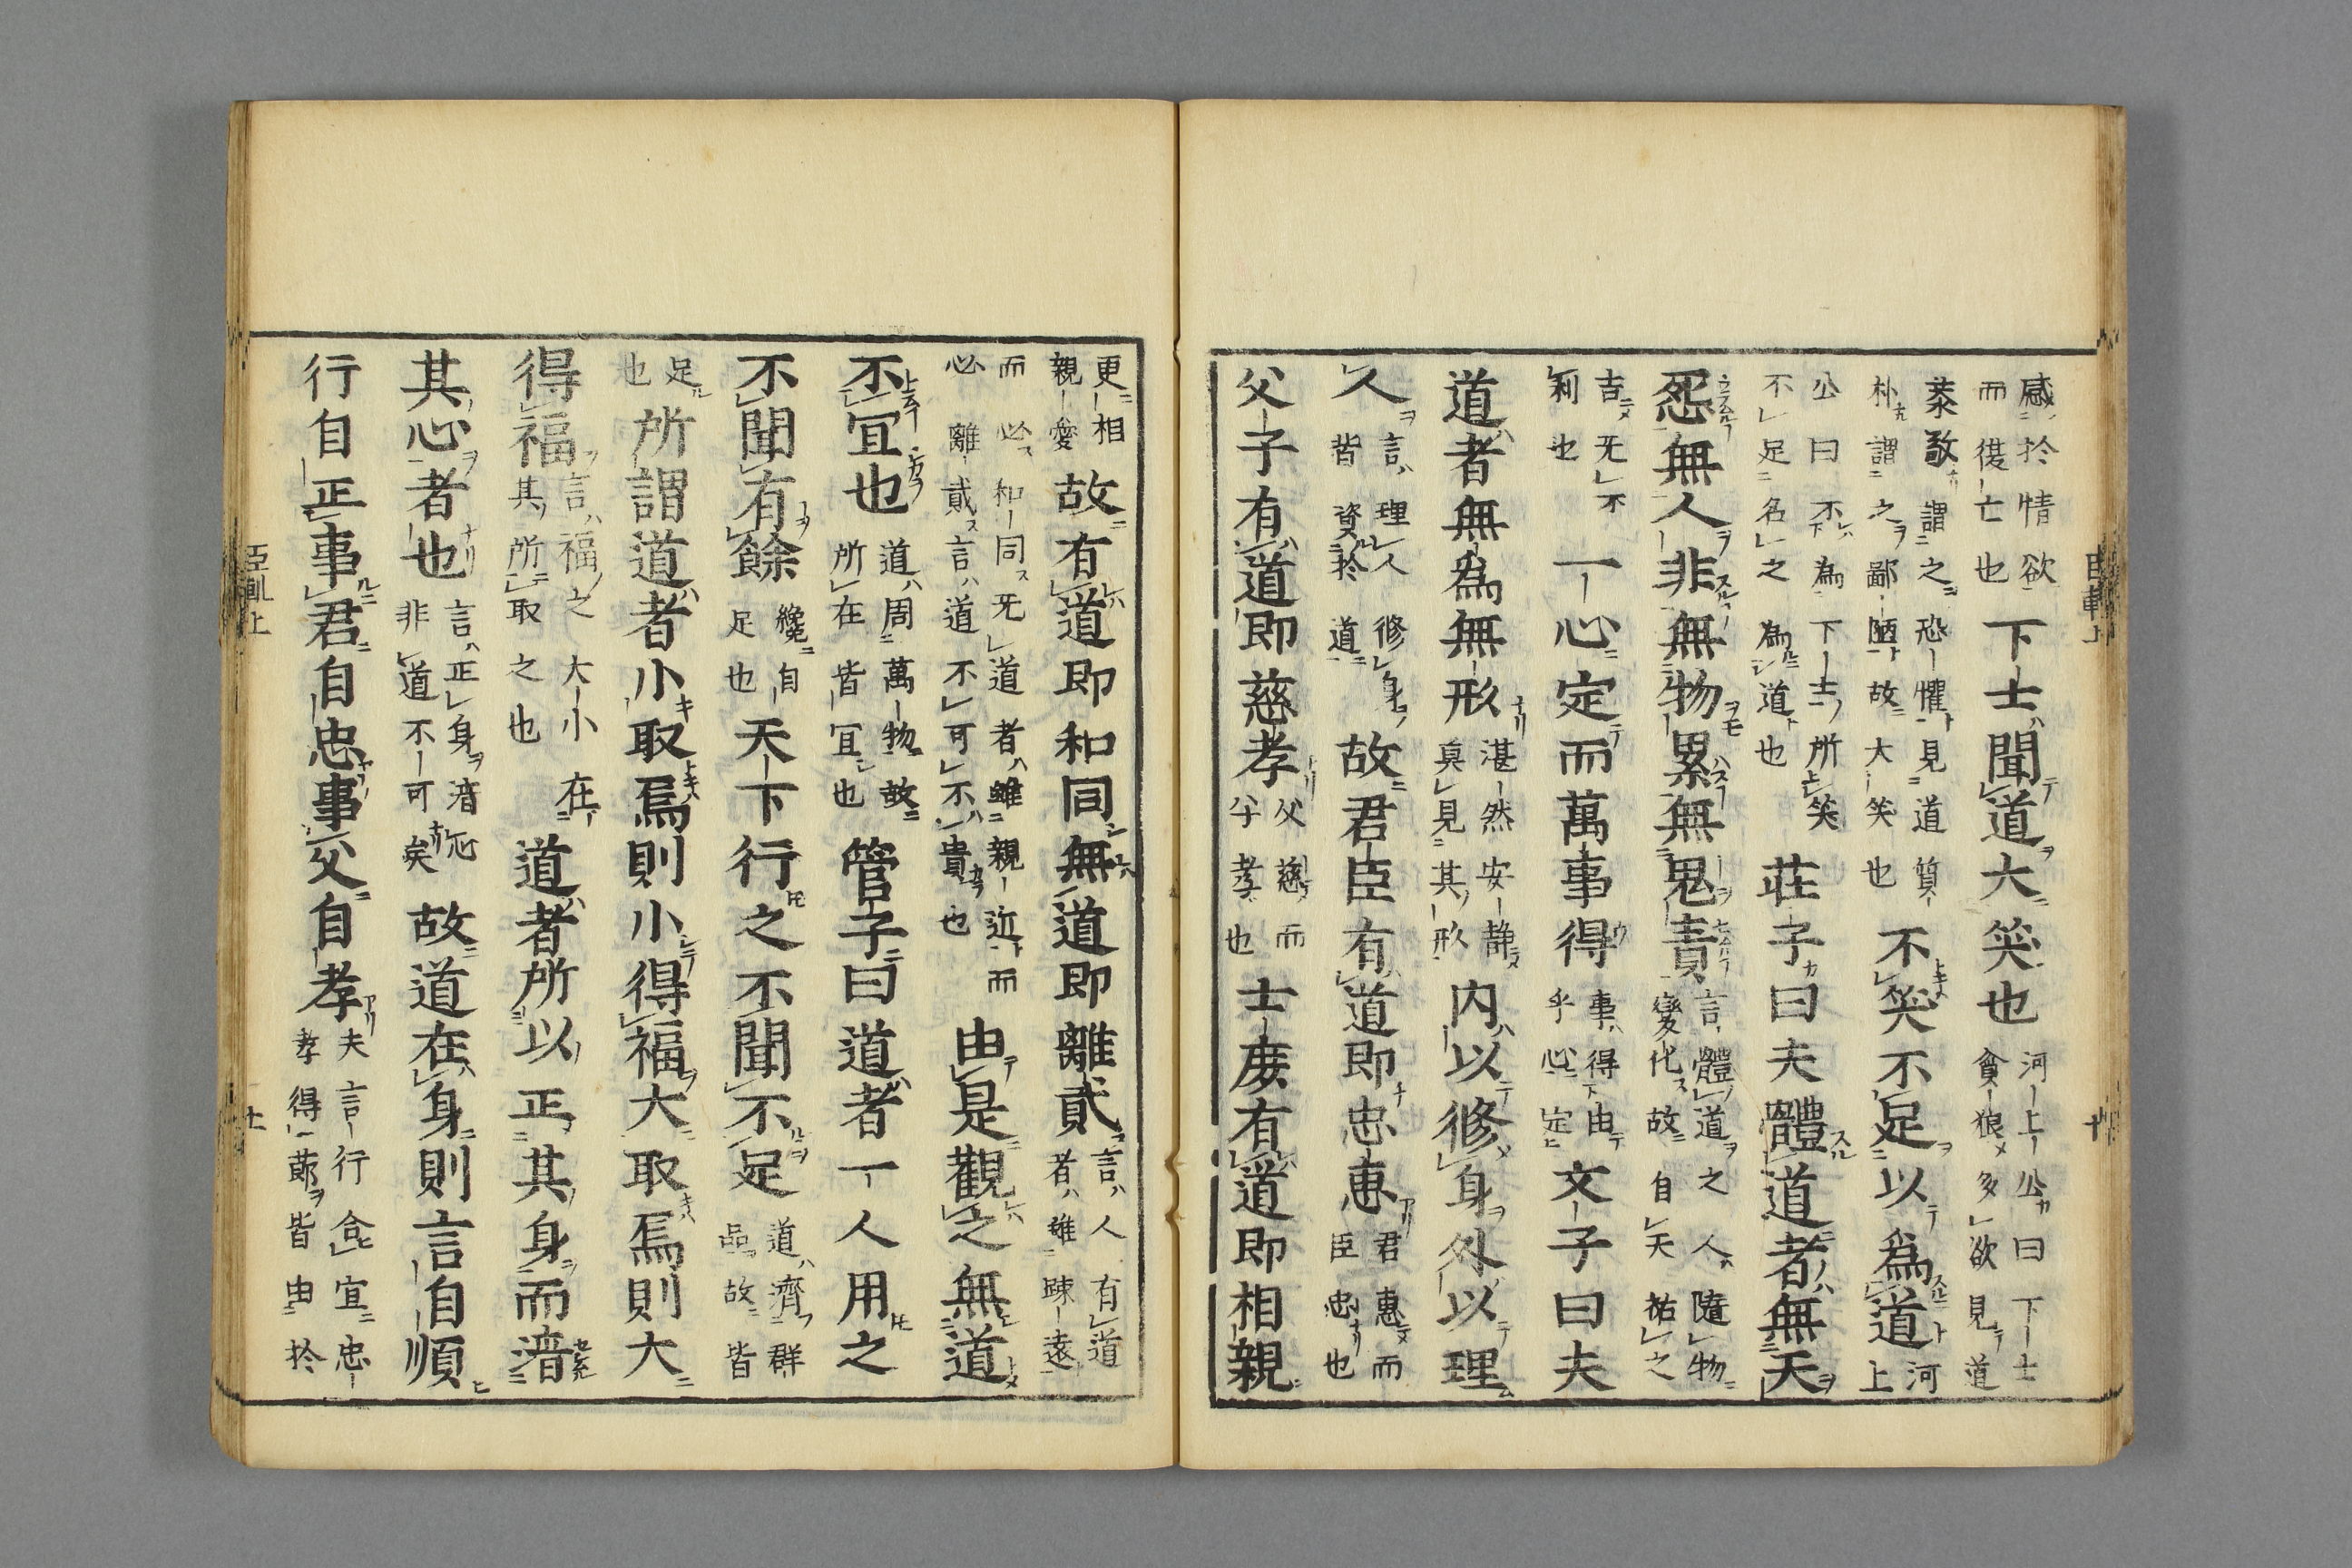 感於情欲
而復亡也
下士聞道大笑也
河上公曰下士
貪狼多欲見道
柔敬謂之恐懼見道質
朴謂之鄙陋故大笑也
不笑不足以為道
河
上
公曰不為下士所笑
不足名之為道也
莊子曰夫體道者無天
怨無人非無物累無鬼責
言體道之人隨物
變化故自天祐之
吉无不
利也
一心定而萬事得
事得由
乎心定
文子曰夫
道者無為無形
湛然安静
莫見其形
内以修身外以理
人
言理人修身
皆資於道
故君臣有道即忠惠
君惠而
臣忠也
父子有道即慈孝
父慈而
子孝也
士庶有道即相親
更相
親愛
故有道即和同無道即離貳
言人有道
者雖踈遠
而必和同无道者雖親近而
必離貳言道不可不貴也
由是觀之無道
不宜也
道周萬物故
所在皆宜也
管子曰道者一人用之
不聞有餘
纔自
足也
天下行之不聞不足
道濟群
品故皆
足
也
所謂道者小取焉則小得福大取焉則大
得福
言福之大小在
其所取之也
道者所以正其身而清
其心者也
言正身清心
非道不可矣
故道在身則言自順
行自正事君自忠事父自孝
夫言行合宜忠
孝得節皆由於
臣軌上
十
臣軌上
十一